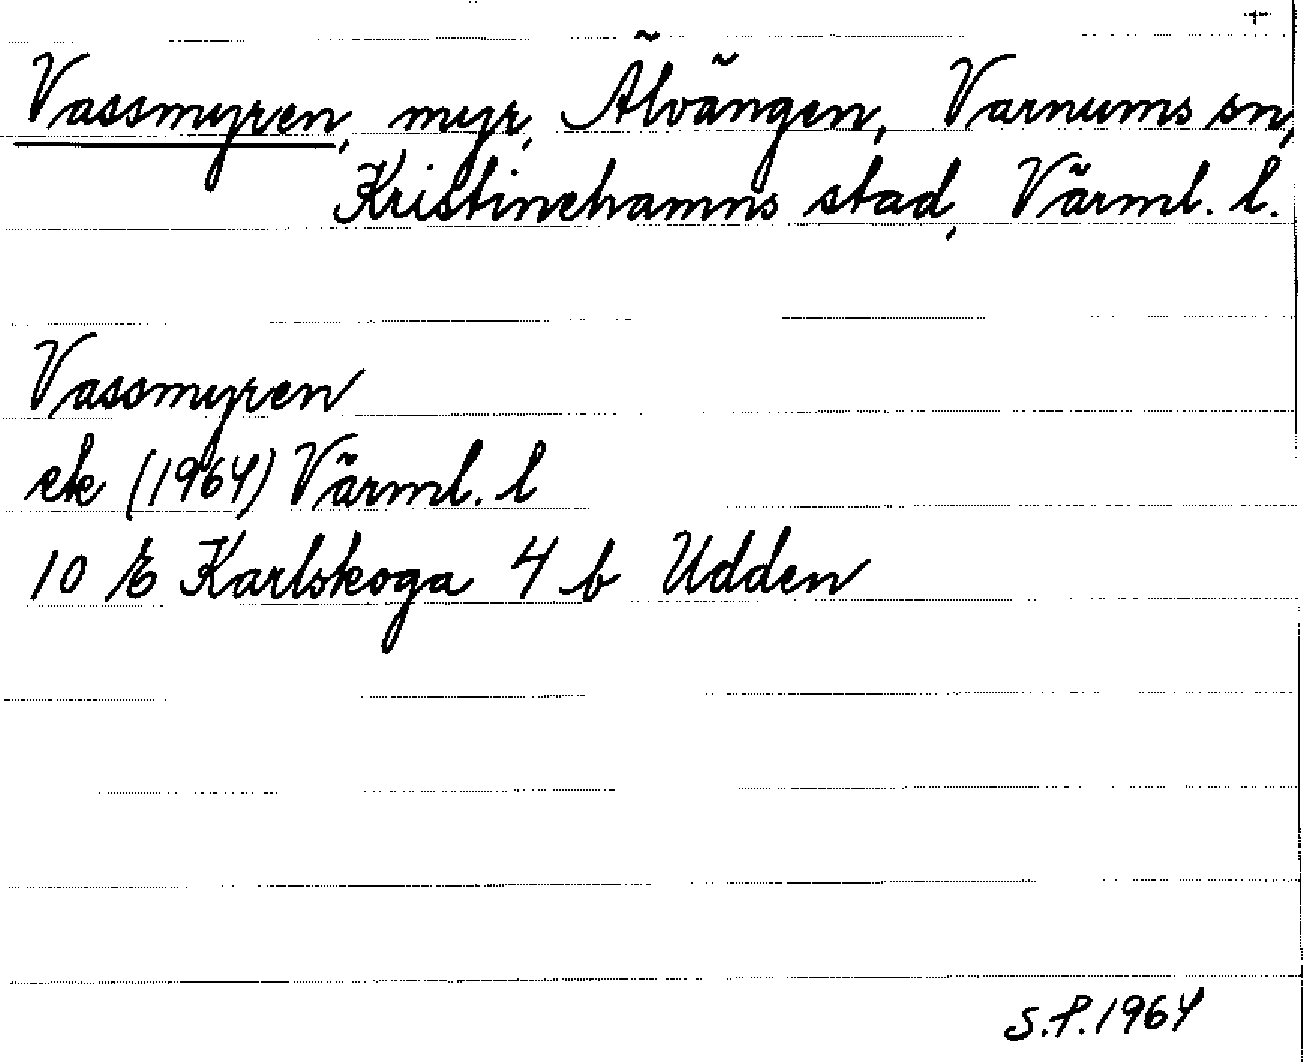 Vassmyren, myr, Älvängen, Varnums sn,
Kristinehamns stad, Värml. l.
Vassmyren
ek (1964) Värml. l
10 E Karlskoga 4 b Udden
S.P. 1964